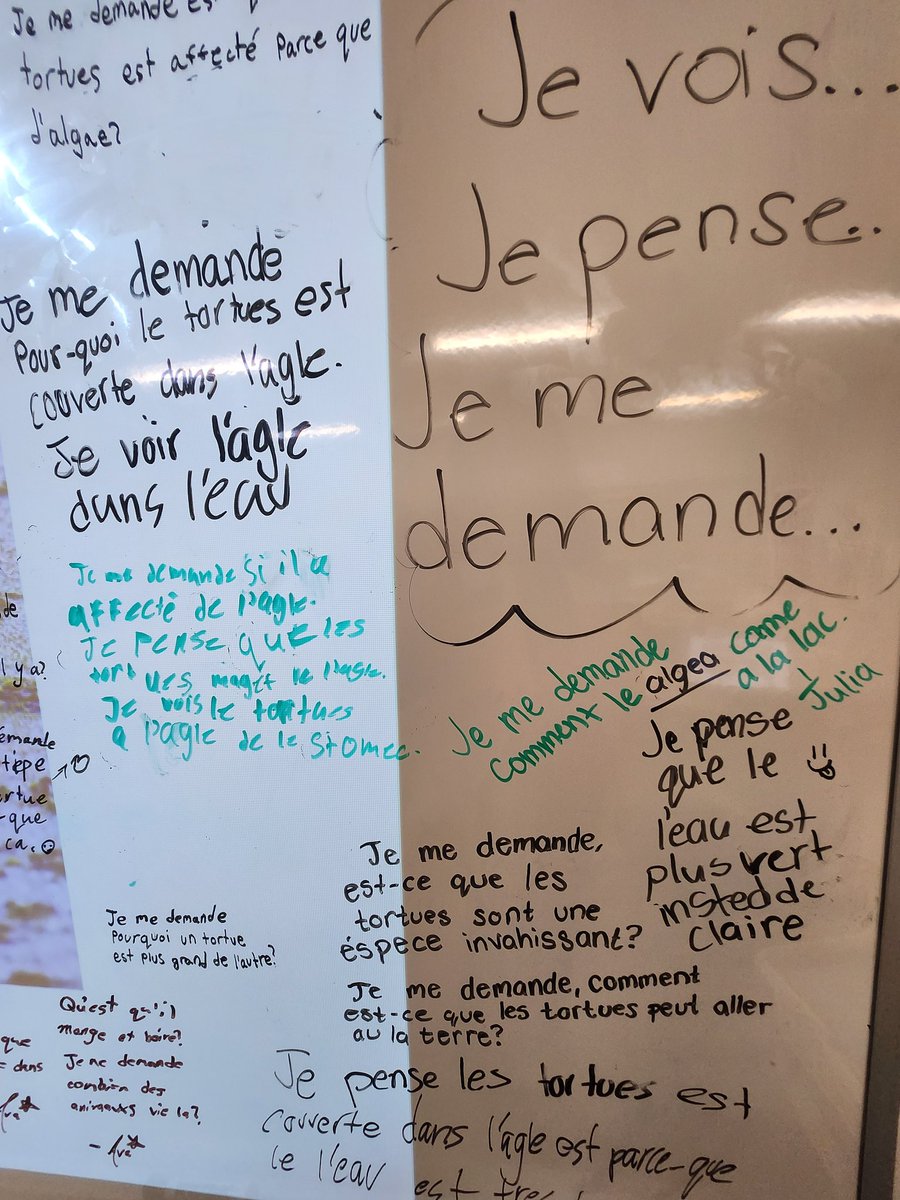 Je me demande
tortues est affecté parce que
d'algae?
Je me demande
Pour-quoi le tortues est
couverte dans l'agle.
Je voir l'agle
dans l'eau
Je me demande si il a
affecté de l'agle.
Je pense que les
tortues le l'agle.
Je vois le tortues
a l'agle de le stomec.
de
l y a?
émande
tèpe
rtue
que
ca.
Je me demande
Pourquoi un tortue
est plus grand de l'autre?
Qu'est qu'il
mange et boire?
Je me demande
combien des
animauts vie la?
que
dans
Je vois...
Je pense..
Je me
demande...
Je me demande
comment le algea came
a la lac.
Julia
Je pense
que le
l'eau est
plus vert
insted de
claire
Je me demande,
est-ce que les
tortues sont une
éspece invahissant?
Je me demande, comment
est-ce que les tortues peut aller
au la terre?
Je pense les tortues est
couverte dans l'agle est parce-que
le l'eau est